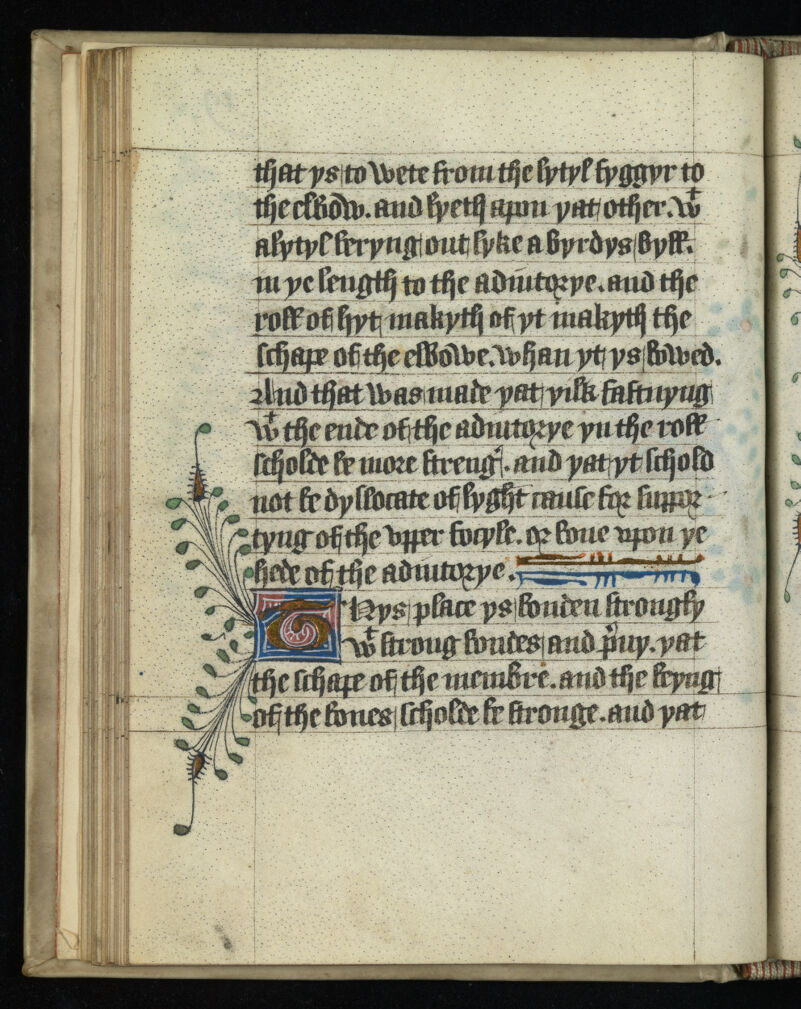 that ys to wete from the lytyl fyggyr to
the elbow. and lyeth apon yat other. wt
a lytyl beryng out lyke a byrdys byll.
in ye length to the adiutorye. and the
roll of hyt makyth of yt makyth the
schape of the elbowe. whan yt ys bowed.
And that was made yat yilk fastnyng
wt the ende of the adiutorye yn the roll
scholde be more streng. and yat yt schold
not be dyslocate of lyght cause for suppor
tyng of the vpper focyle. or bone vpon ye
hede of the adiutorye.
Thys place ys bonden strongly
wt strong bondes and pruy. yat
the schape of the membre. and the beyng
of the bones scholde be stronge. and yat